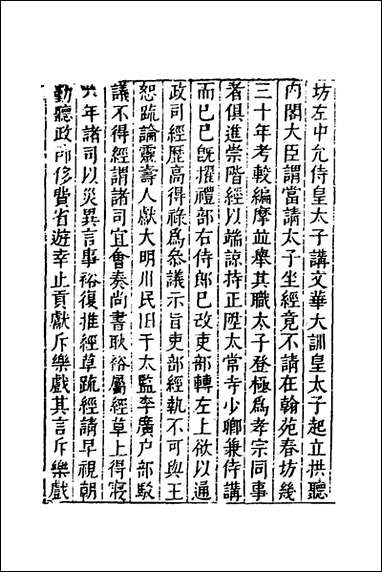 坊左中允侍皇太子講文華大訓皇太子起立拱聽
內閣大臣謂當請太子坐經竟不請在翰苑春坊幾
三十年考較編摩並舉其職太子登極爲孝宗同事
者俱進崇階經以端諒持正陞太常寺少卿兼侍講
而已已旣擢禮部右侍郎已改吏部轉左上欲以通
政司經歷高得祿爲叅議示旨吏部經執不可與王
恕疏論靈壽人獻大明川民田于太監李廣户部駁
議不得經謂諸司宜會奏尚書耿裕屬經草上得寢
年諸司以災異言事裕復推經草疏經請早視朝
勤聽政節侈費省遊幸止貢獻斥樂戲其言斥樂戲